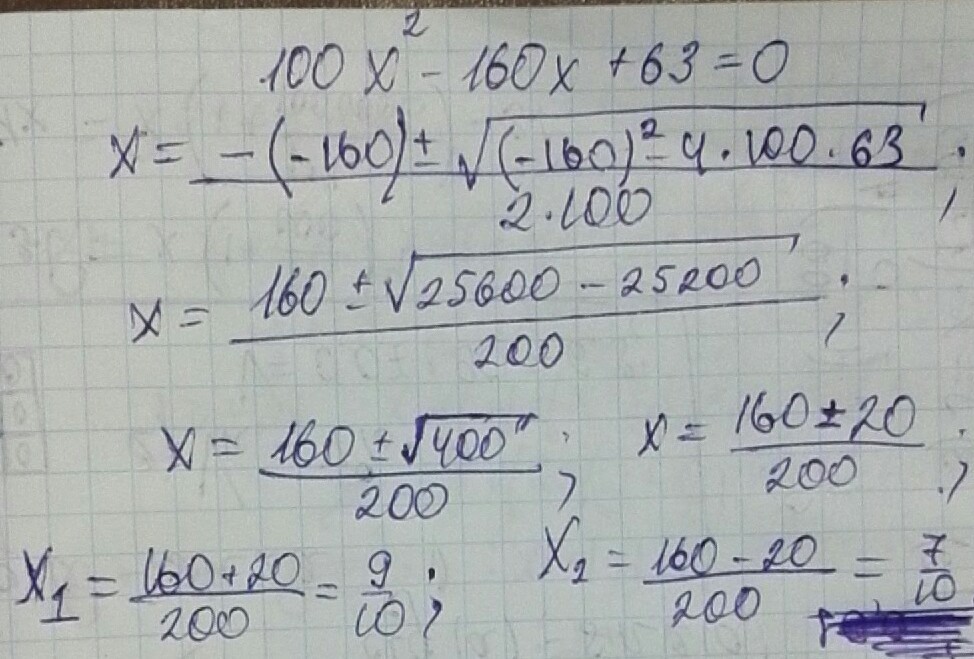 100x² - 160x + 63 = 0
x = (-(-160) ± √((-160)² - 4·100·63)) / (2·100) ;
x = (160 ± √(25600 - 25200)) / 200 ;
x = (160 ± √400) / 200 ; x = (160 ± 20) / 200 ;
x₁ = (160 + 20) / 200 = 9/10 ; x₂ = (160 - 20) / 200 = 7/10